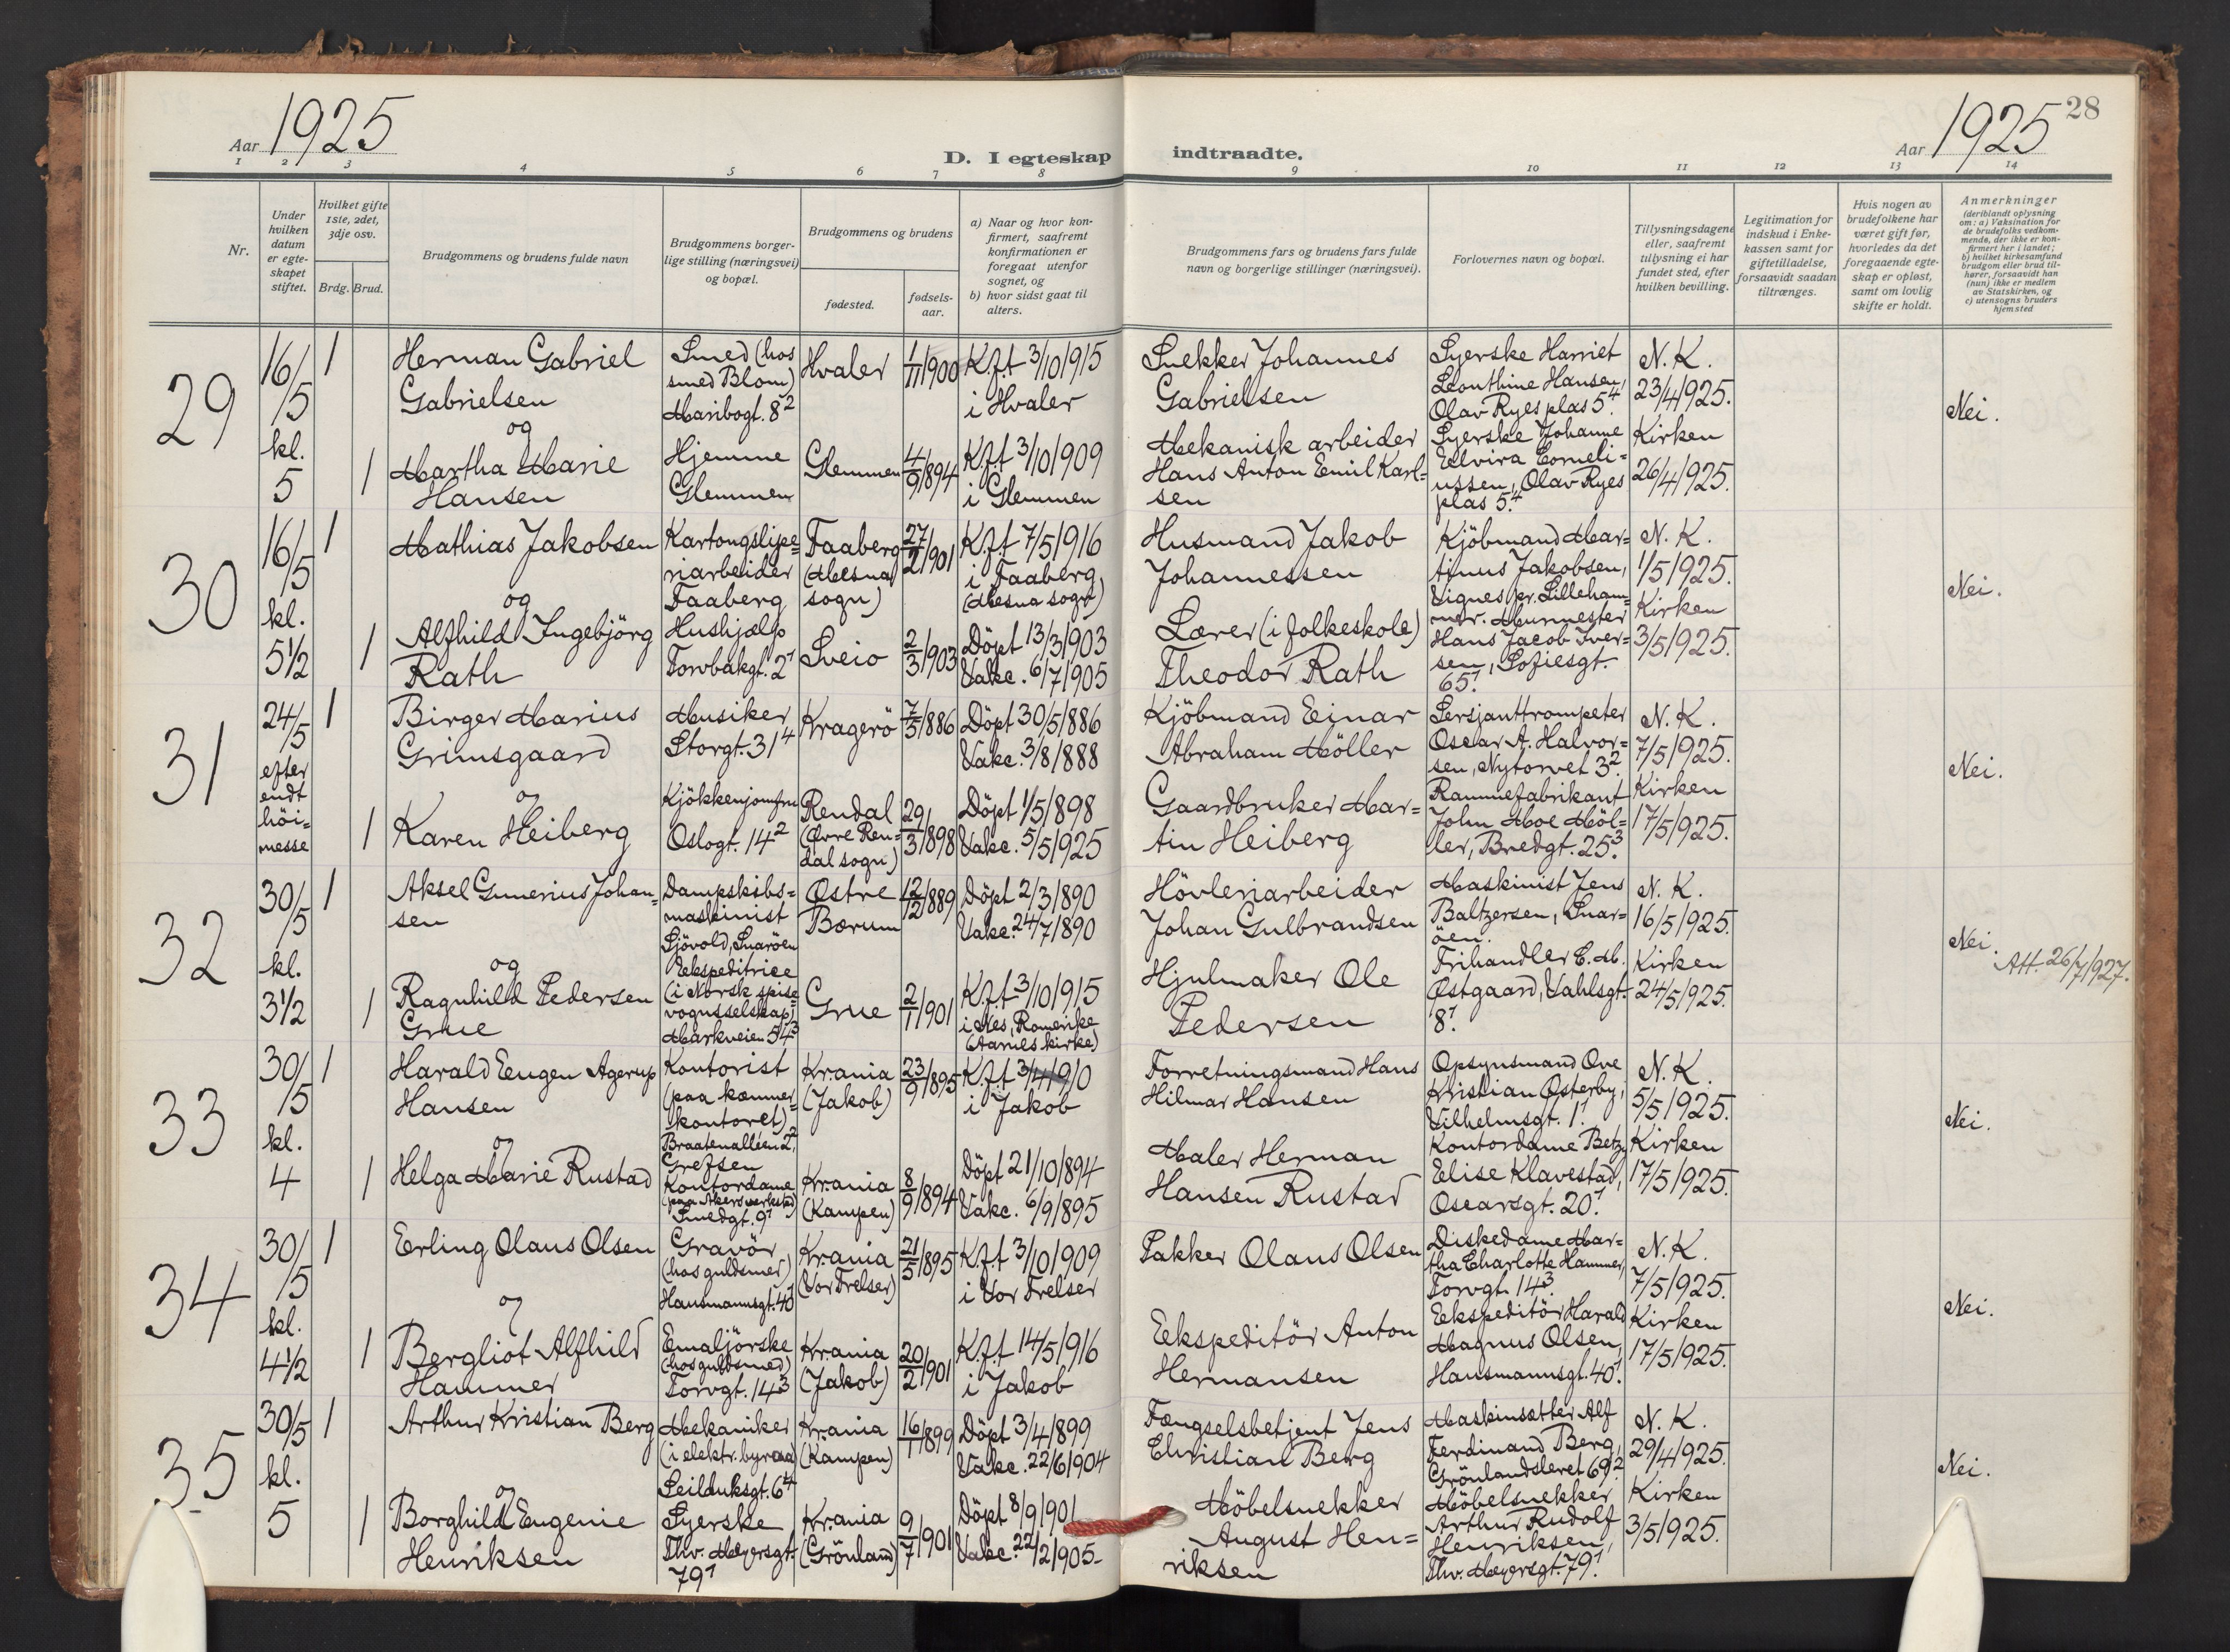 Aar 1925
D. I egteskap indtraadte.
Aar 1925 28
1 2 3 4 5 6 7 8 9 10 11 12 13 14
Nr.
Under hvilken datum er egteskapet stiftet.
Hvilket gifte 1ste, 2det, 3dje osv.
Brdg. Brud.
Brudgommens og brudens fulde navn
Brudgommens borgerlige stilling (næringsvei) og bopæl.
Brudgommens og brudens
fødested.
fødselsaar.
a) Naar og hvor konfirmert, saafremt konfirmationen er foregaat utenfor sognet, og
b) hvor sidst gaat til alters.
Brudgommens fars og brudens fars fulde navn og borgerlige stillinger (næringsvei).
Forlovernes navn og bopæl.
Tillysningsdagene eller, saafremt tillysning ei har fundet sted, efter hvilken bevilling.
Legitimation for indskud i Enkekassen samt for giftetilladelse, forsaavidt saadan tiltrænges.
Hvis nogen av brudefolkene har været gift før, hvorledes da det foregaaende egteskap er opløst, samt om lovlig skifte er holdt.
Anmerkninger
(deriblandt oplysning om: a) Vaksination for de brudefolks vedkommende, der ikke er konfirmert her i landet;
b) hvilket kirkesamfund brudgom eller brud tilhører, forsaavidt han (hun) ikke er medlem av Statskirken, og
c) utensogns bruders hjemsted
29
16/5
kl.
5
1
Herman Gabriel
Gabrielsen
og
1
Martha Marie
Hansen
Smed (hos
smed Blom)
Maribogt. 8²
Hjemme
Glemmen
Hvaler 1/11 1900
Glemmen 4/9 1894
K.f.t 3/10 1915
i Hvaler
K.f.t 3/10 1909
i Glemmen
Snekker Johannes
Gabrielsen
Mekanisk arbeider
Hans Anton Emil Karl=
sen
Syerske Harriet
Leonthine Hansen,
Olav Ryes plas 5⁴.
Syerske Johanne
Elvira Corneli=
ussen, Olav Ryes
plas 5⁴.
N. K.
23/4 1925.
Kirken
26/4 1925.
Nei.
30
16/5
kl.
5½
1
Mathias Jakobsen
og
1
Alfhild Ingebjörg
Rath
Kartongslipe=
riarbeider
Faaberg
Hushjælp
Torvbakgt. 2¹
Faaberg
(Mesna
sogn)
27/2 1901
Sveio 2/3 1903
K.f.t 7/5 1916
i Faaberg
(Mesna sogn)
Döpt 13/3 1903
Vakc. 6/7 1905
Husmand Jakob
Johannessen
Lærer (i folkeskole)
Theodor Rath
Kjöbmand Mar=
tinus Jakobsen,
Vignes pr. Lilleham=
mer. Murmester
Hans Jacob Iver=
sen, Sofiesgt.
65¹.
N. K.
1/5 1925.
Kirken
3/5 1925.
Nei.
31
24/5
efter
endt
höi=
messe
1
Birger Marius
Grimsgaard
og
1
Karen Heiberg
Musiker
Storgt. 31⁴
Kjökkenjomfru
Oslogt. 14²
Kragerö 7/5 1886
Rendal
(Øvre Ren=
dal sogn)
29/3 1898
Döpt 30/5 1886
Vakc. 3/8 1888
Döpt 1/5 1898
Vakc. 5/5 1925
Kjöbmand Einar
Abraham Möller
Gaardbruker Mar=
tin Heiberg
Sersjanttrompeter
Oscar A. Halvor=
sen, Nytorvet 3².
Rammefabrikant
John Moe Möl=
ler, Bredgt. 25³.
N. K.
7/5 1925.
Kirken
17/5 1925.
Nei.
32
30/5
kl.
3½
1
Aksel Gunerius Johan=
sen
og
1
Ragnhild Pedersen
Grue
Dampskibs=
maskinist
Sjövold, Snaröen
Ekspeditrice
(i Norsk spise=
vognsselskap)
Markveien 54³
Østre
Bærum
12/12 1889
Grue 2/1 1901
Döpt 2/3 1890
Vakc. 24/7 1890
K.f.t 3/10 1915
i Nes, Romerike
(Aarnes kirke)
Hövleriarbeider
Johan Gulbrandsen
Hjulmaker Ole
Pedersen
Maskinist Jens
Baltzersen, Snar=
öen.
Frihandler E. M.
Østgaard, Vahlsgt.
8¹.
N. K.
16/5 1925.
Kirken
24/5 1925.
Nei.
Att. 26/7 1927.
33
30/5
kl.
4
1
Harald Eugen Agerup
Hansen
og
1
Helga Marie Rustad
Kontorist
(paa kæmner=
kontoret)
Braatenalléen 2²,
Grefsen
Kontordame
(paa Akers verksted)
Smedgt. 9¹
Kr.ania
(Jakob)
23/9 1895
Kr.ania
(Kampen)
8/9 1894
K.f.t 3/4 1910
i Jakob
Döpt 21/10 1894
Vakc. 6/9 1895
Forretningsmand Hans
Hilmar Hansen
Maler Herman
Hansen Rustad
Opsynsmand Ove
Kristian Østerby,
Vilhelmsgt. 1¹.
Kontordame Betzy
Elise Klavestad,
Oscarsgt. 20¹.
N. K.
5/5 1925.
Kirken
17/5 1925.
Nei.
34
30/5
kl.
4½
1
Erling Olaus Olsen
og
1
Bergliot Alfhild
Hammer
Gravör
(hos guldsmed)
Hausmannsgt. 40¹
Emaljörske
(hos guldsmed)
Torvgt. 14³
Kr.ania
(Vor Frelser)
21/5 1895
Kr.ania
(Jakob)
20/2 1901
K.f.t 3/10 1909
i Vor Frelser
K.f.t 14/5 1916
i Jakob
Pakker Olaus Olsen
Ekspeditör Anton
Hermansen
Diskedame Mar=
tha Charlotte Hammer,
Torvgt. 14³.
Ekspeditör Harald
Magnus Olsen,
Hausmannsgt. 40¹.
N. K.
7/5 1925.
Kirken
17/5 1925.
Nei.
35
30/5
kl.
5
1
Arthur Kristian Berg
og
1
Borghild Eugenie
Henriksen
Mekaniker
(i elektr. byraa)
Seilduksgt. 6⁴
Syerske
Thv. Meyersgt.
79¹
Kr.ania
(Kampen)
16/1 1899
Kr.ania
(Grönland)
9/7 1901
Döpt 3/4 1899
Vakc. 22/6 1904
Döpt 8/9 1901
Vakc. 22/2 1905
Fængselsbetjent Jens
Christian Berg
Möbelsnekker
August Hen=
riksen
Maskinsætter Alf
Ferdinand Berg,
Grönlandsleret 69².
Möbelsnekker
Arthur Rudolf
Henriksen,
Thv. Meyersgt. 79¹.
N. K.
29/4 1925.
Kirken
3/5 1925.
Nei.